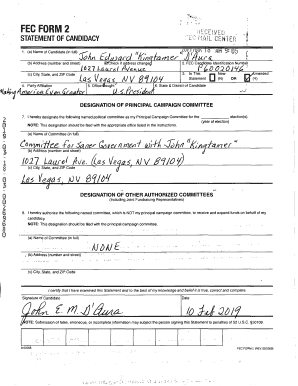 FEC FORM 2
STATEMENT OF CANDIDACY
RECEIVED
FEC MAIL CENTER
1. (a) Name of Candidate (in full)
John Edward "Kingtamer" D'Aura
(b) Address (number and street)
1027 Laurel Avenue
2. Candidate's FEC Identification Number
(c) City, State, and ZIP Code
Las Vegas, NV 89104
3. Is This Statement
New (N) OR Amended (A)
4. Party Affiliation
5. Office Sought
6. State & District of Candidate
Making America Even Greater
U.S. President
DESIGNATION OF PRINCIPAL CAMPAIGN COMMITTEE
7. I hereby designate the following named political committee as my Principal Campaign Committee for the election(s).
(year of election)
NOTE: This designation should be filed with the appropriate office listed in the instructions.
(a) Name of Committee (in full)
Committee for Saner Government with John "Kingtamer"
(b) Address (number and street)
1027 Laurel Ave. (Las Vegas, NV 89104)
(c) City, State, and ZIP Code
Las Vegas, NV 89104
DESIGNATION OF OTHER AUTHORIZED COMMITTEES
(Including Joint Fundraising Representatives)
8. I hereby authorize the following named committee, which is NOT my principal campaign committee, to receive and expend funds on behalf of my candidacy.
NOTE: This designation should be filed with the principal campaign committee.
(a) Name of Committee (in full)
NONE
(b) Address (number and street)
(c) City, State, and ZIP Code
I certify that I have examined this Statement and to the best of my knowledge and belief it is true, correct and complete.
Signature of Candidate
Date
John E. M. D'Aura
10 Feb 2019
NOTE: Submission of false, erroneous, or incomplete information may subject the person signing this Statement to penalties of 52 U.S.C. §30109.